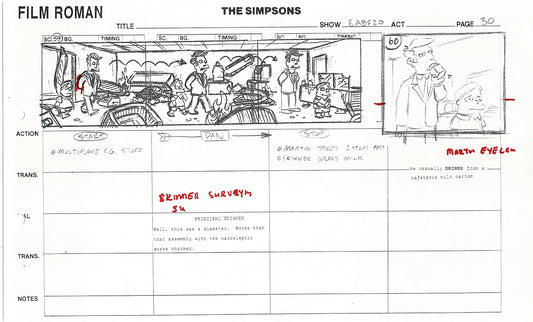 FILM ROMAN
THE SIMPSONS
TITLE SHOW EABF20 ACT PAGE 30
SC. 59 BG. TIMING SC. BG. TIMING SC. BG. TIMING
60
ACTION
START PAN STOP
MULTIPLANE F.G. STUFF
MARTIN TAKES 2 STEPS
SKINNER GRABS MILK
MARTIN
TRANS.
He casually DRINKS from a
cafeteria milk carton
SKINNER SURVEYS
PRINCIPAL SKINNER
Well, this was a disaster. Worse than
that assembly with the narcoleptic
snake charmer.
TRANS.
NOTES